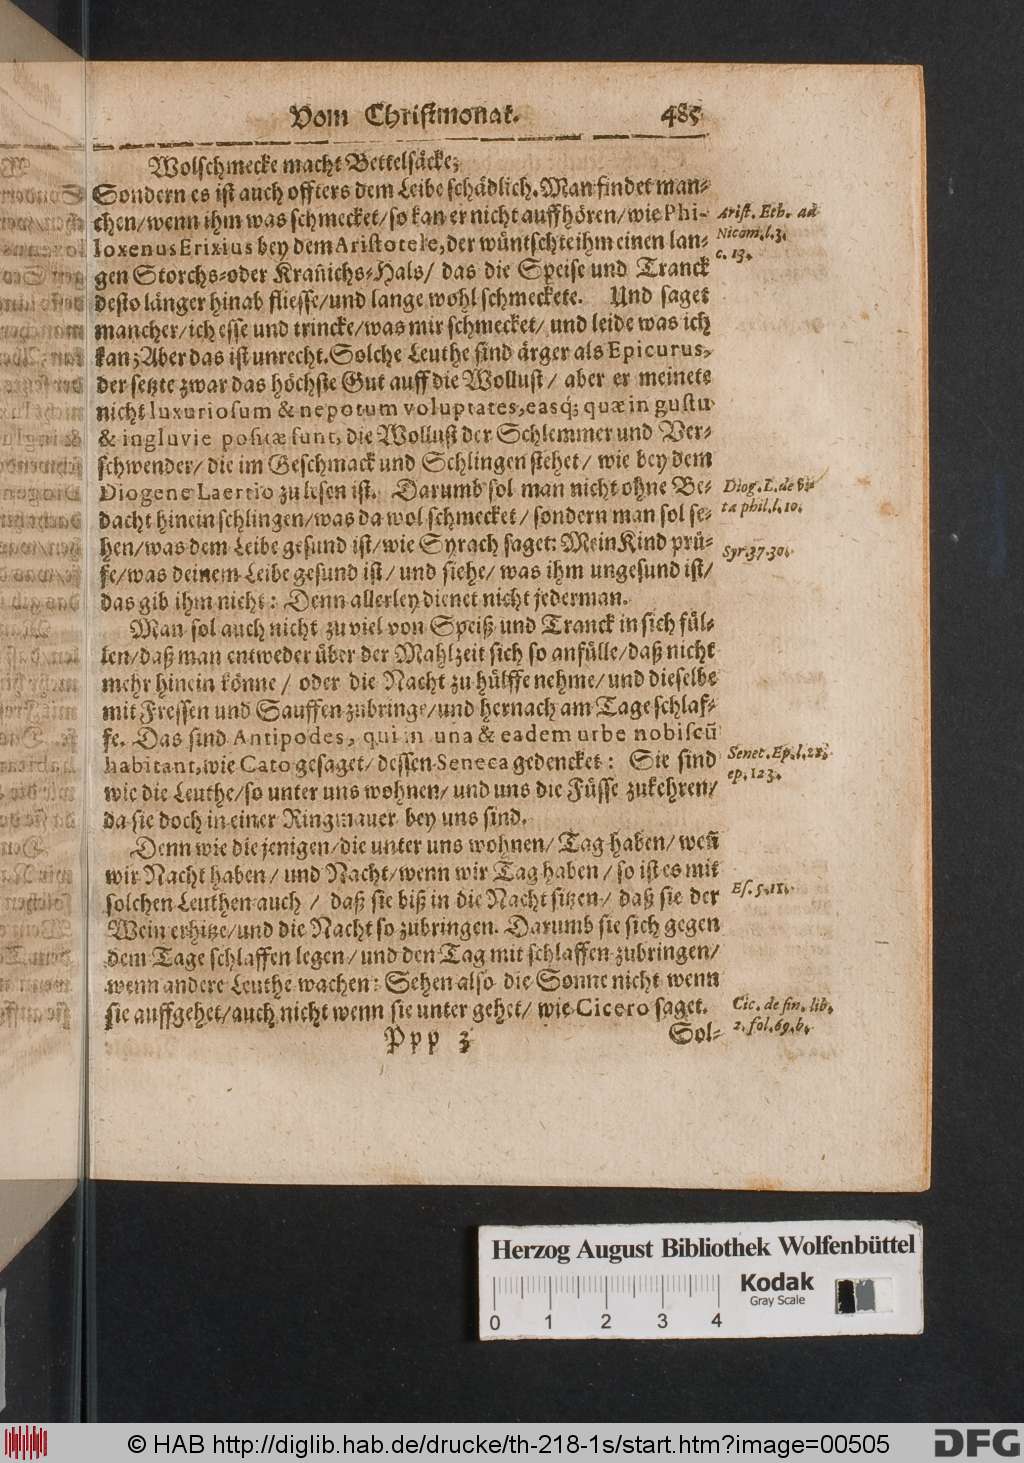 Vom Christmonat. 485
Wolschmecke macht Bettelsäcke;
Sondern es ist auch offters dem Leibe schädlich. Man findet man-
chen/ wenn ihm was schmecket/ so kan er nicht auffhören/ wie Phi-
loxenus Erixius bey dem Aristotele, der wüntschte ihm einen lan-
gen Storchs- oder Kran̄ichs-Hals/ das die Speise und Tranck
desto länger hinab fliesse/ und lange wohl schmeckete. Und saget
mancher/ ich esse und trincke/ was mir schmecket/ und leide was ich
kan; Aber das ist unrecht. Solche Leuthe sind ärger als Epicurus,
der setzte zwar das höchste Gut auff die Wollust/ aber er meinete
nicht luxuriosum & nepotum voluptates, easq; quæ in gustu
& ingluvie positæ sunt, die Wollust der Schlemmer und Ver-
schwender/ die im Geschmack und Schlingen stehet/ wie bey dem
Diogene Laertio zu lesen ist. Darumb sol man nicht ohne Be-
dacht hinein schlingen/ was da wol schmecket/ sondern man sol se-
hen/ was dem Leibe gesund ist/ wie Syrach saget: Mein Kind prü-
fe/ was deinem Leibe gesund ist/ und siehe/ was ihm ungesund ist/
das gib ihm nicht: Denn allerley dienet nicht jederman.
Man sol auch nicht zu viel von Speiß und Tranck in sich fül-
len/ daß man entweder über der Mahlzeit sich so anfülle/ daß nicht
mehr hinein könne/ oder die Nacht zu hülffe nehme/ und dieselbe
mit Fressen und Sauffen zubringe/ und hernach am Tage schlaf-
fe. Das sind Antipodes, qui in una & eadem urbe nobiscū
habitant, wie Cato gesaget/ dessen Seneca gedencket: Sie sind
wie die Leuthe/ so unter uns wohnen/ und uns die Füsse zukehren/
da sie doch in einer Ringmauer bey uns sind.
Denn wie die jenigen/ die unter uns wohnen/ Tag haben/ wen̄
wir Nacht haben/ und Nacht/ wenn wir Tag haben/ so ist es mit
solchen Leuthen auch/ daß sie biß in die Nacht sitzen/ daß sie der
Wein erhitze/ und die Nacht so zubringen. Darumb sie sich gegen
dem Tage schlaffen legen/ und den Tag mit schlaffen zubringen/
wenn andere Leuthe wachen: Sehen also die Sonne nicht wenn
sie auffgehet/ auch nicht wenn sie unter gehet/ wie Cicero saget.
Ppp 3 Sol-
Arist. Eth. ad
Nicom. l. 3.
c. 13.
Diog. L. de vi-
ta phil. l. 10.
Syr. 37. 30.
Senec. Ep. l. 22.
ep. 123.
Es. 5. 11.
Cic. de fin. lib.
2. fol. 69. b.
Herzog August Bibliothek Wolfenbüttel
Kodak
Gray Scale
0 1 2 3 4
© HAB http://diglib.hab.de/drucke/th-218-1s/start.htm?image=00505
DFG